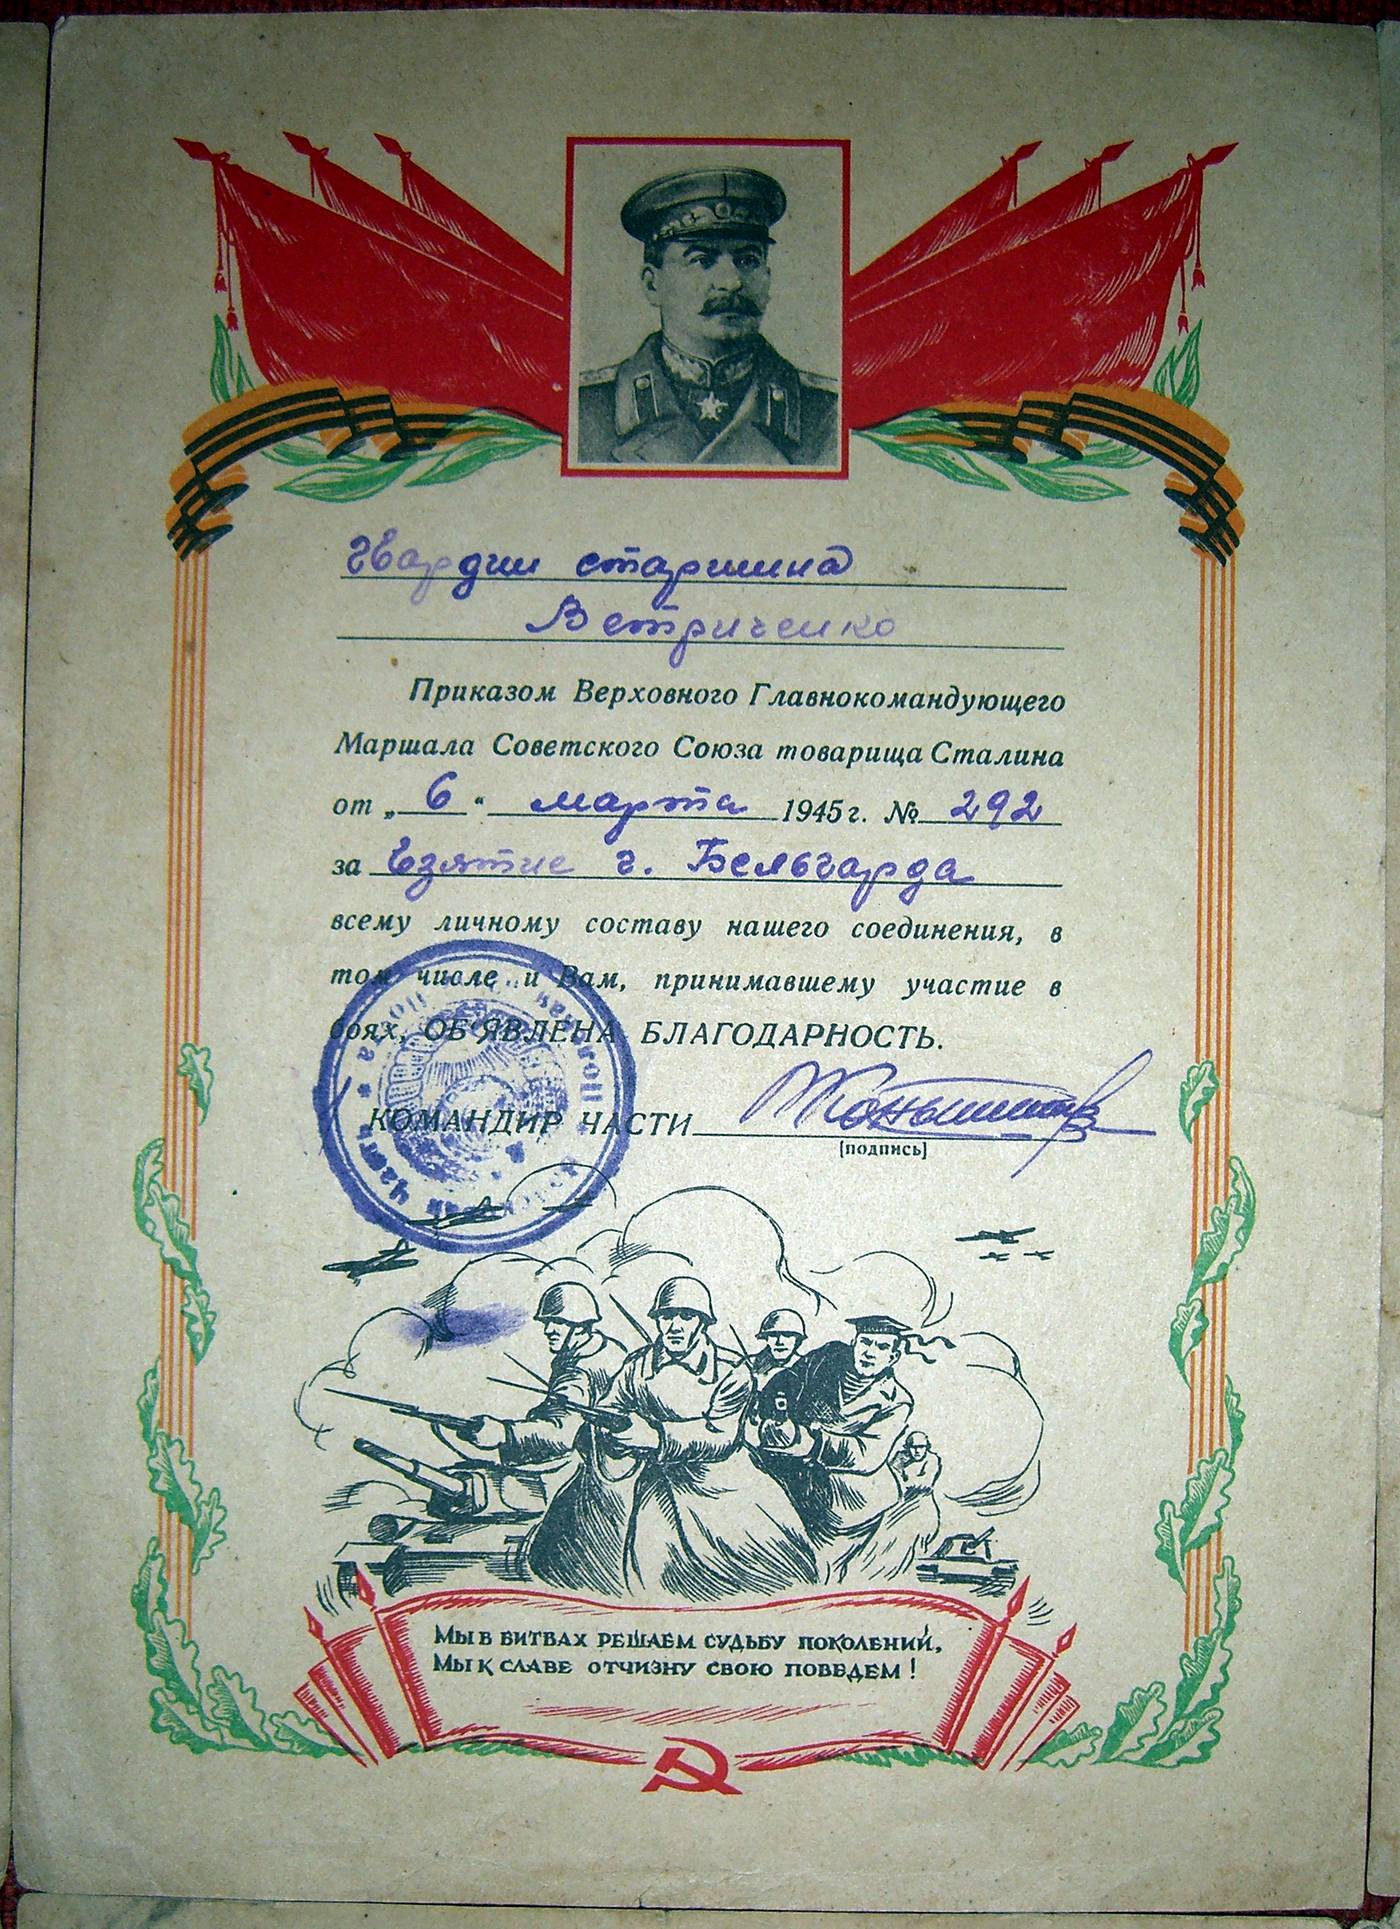 гвардии старшина
Ветриченко
Приказом Верховного Главнокомандующего
Маршала Советского Союза товарища Сталина
от „6“ марта 1945 г. № 292
за взятие г. Бельгарда
всему личному составу нашего соединения, в
том числе и Вам, принимавшему участие в
боях, ОБ'ЯВЛЕНА БЛАГОДАРНОСТЬ.
КОМАНДИР ЧАСТИ
(подпись)
МЫ В БИТВАХ РЕШАЕМ СУДЬБУ ПОКОЛЕНИЙ,
МЫ К СЛАВЕ ОТЧИЗНУ СВОЮ ПОВЕДЕМ!